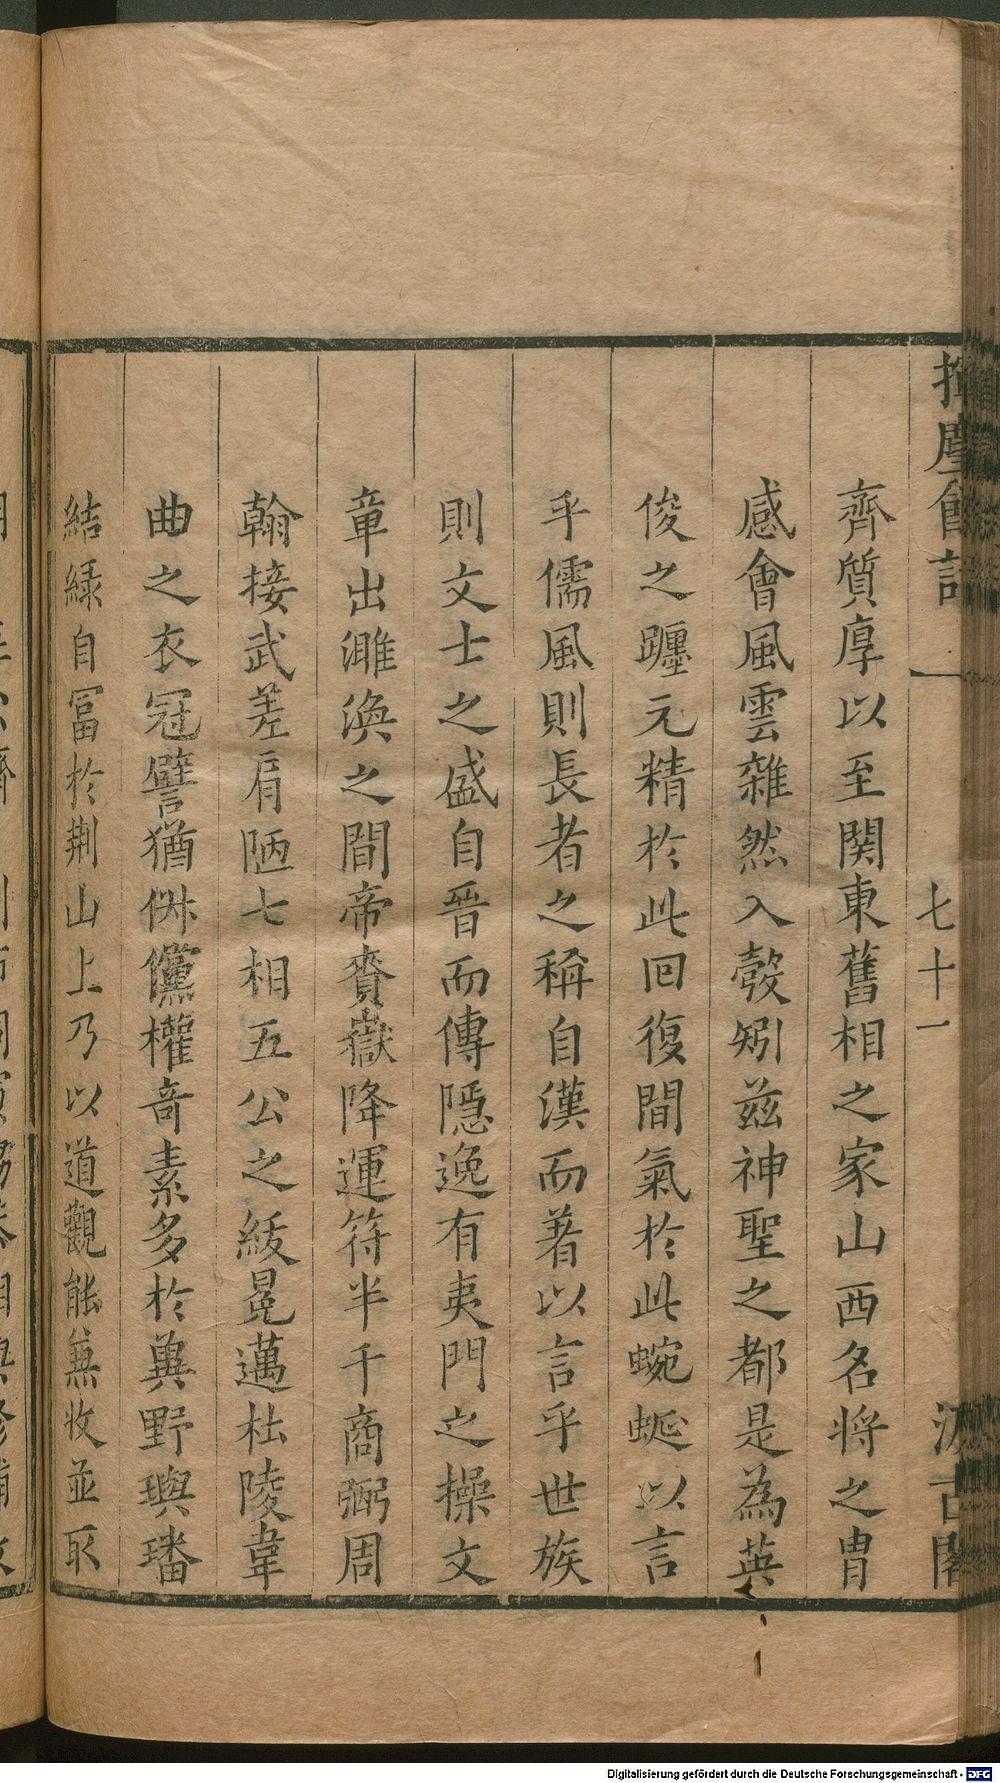 揮麈餘話
一
七十一
汲古閣
齊質厚以至関東舊相之家山西名將之胄
感會風雲雜然入彀矧茲神聖之都是為英
俊之躔元精於此回復間氣於此蜿蜒以言
乎儒風則長者之稱自漢而著以言乎世族
則文士之盛自晉而傳隱逸有夷門之操文
章出濉渙之間帝賚嶽降運符半千商弼周
翰接武差肩陋七相五公之綬冕邁杜陵韋
曲之衣冠譬猶俶儻權奇素多於冀野璵璠
結緑自富於荆山上乃以道觀能兼收並取
Digitalisierung gefördert durch die Deutsche Forschungsgemeinschaft - DFG